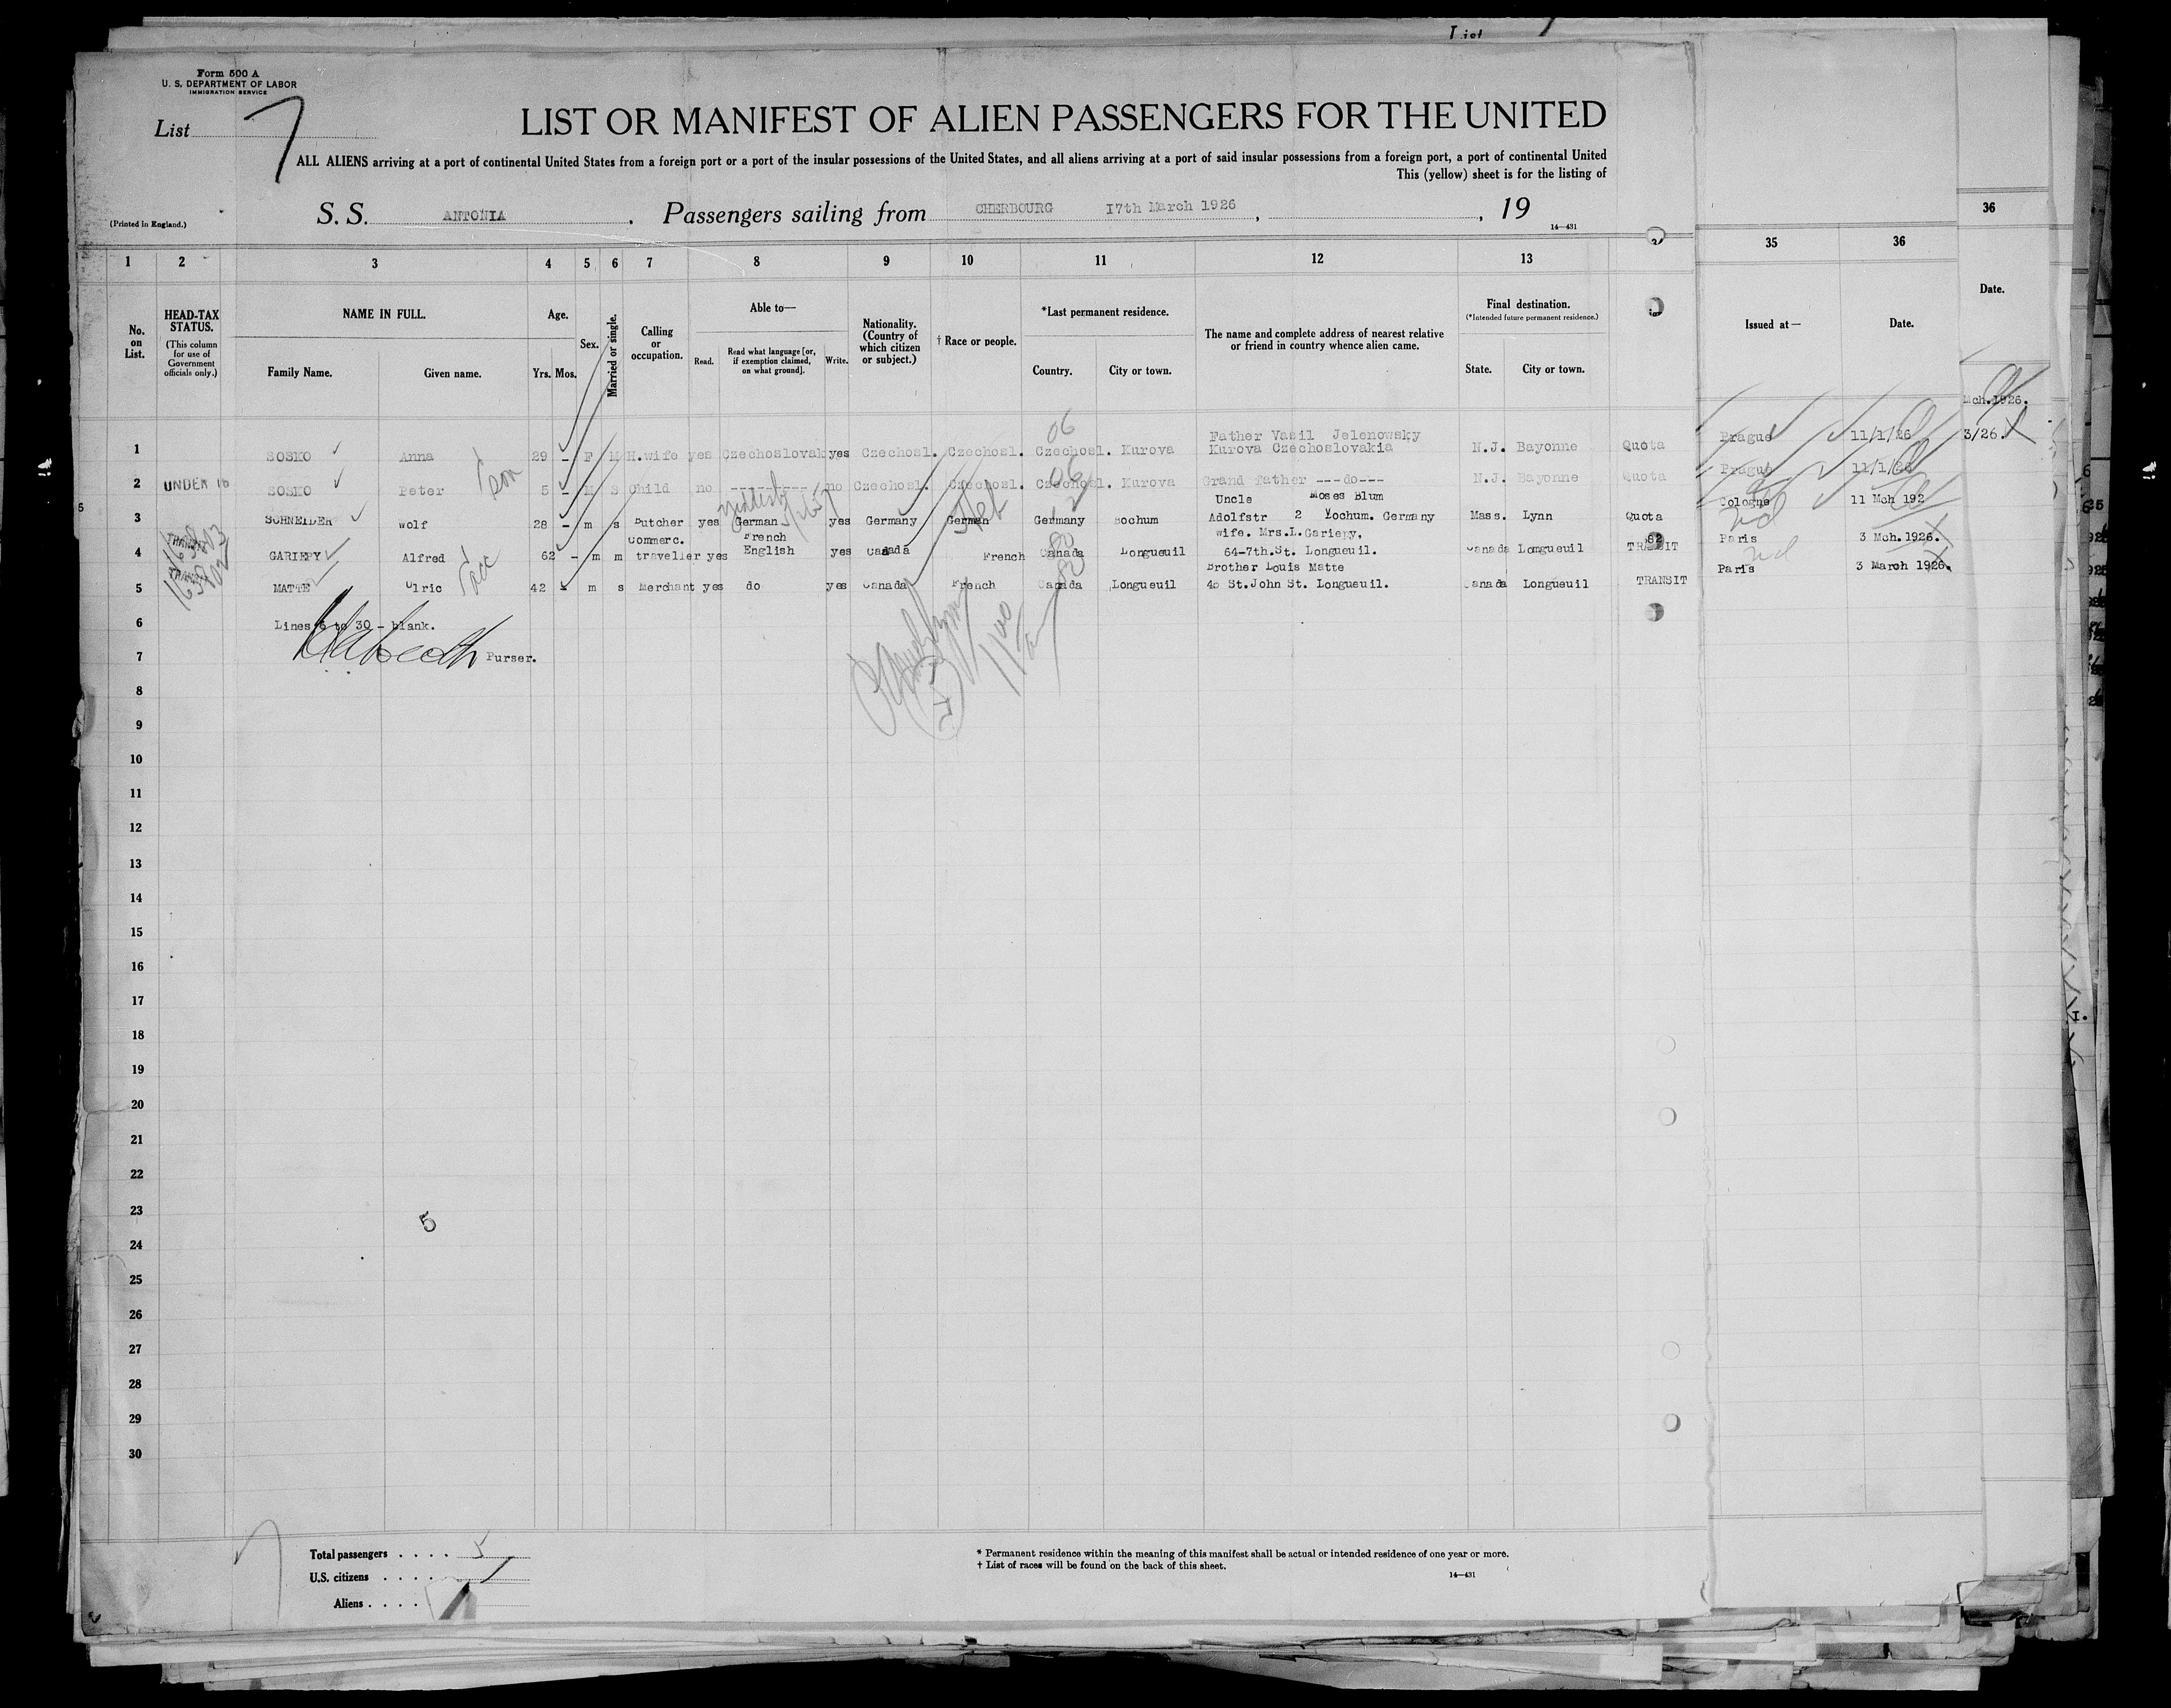 List
Form 500 A
U. S. DEPARTMENT OF LABOR
IMMIGRATION SERVICE
List 7
LIST OR MANIFEST OF ALIEN PASSENGERS FOR THE UNITED
ALL ALIENS arriving at a port of continental United States from a foreign port or a port of the insular possessions of the United States, and all aliens arriving at a port of said insular possessions from a foreign port, a port of continental United
This (yellow) sheet is for the listing of
(Printed in England.)
S. S. ANTONIA . Passengers sailing from CHERBOURG 17th March 1926 , , 19
14—431
1 2 3 4 5 6 7 8 9 10 11 12 13 35 36 36
No. on List. HEAD-TAX STATUS. (This column for use of Government officials only.) NAME IN FULL. Family Name. Given name. Age. Yrs. Mos. Sex. Married or single. Calling or occupation. Able to— Read. Read what language [or, if exemption claimed, on what ground]. Write. Nationality. (Country of which citizen or subject.) † Race or people. *Last permanent residence. Country. City or town. The name and complete address of nearest relative or friend in country whence alien came. Final destination. (*Intended future permanent residence.) State. City or town. Issued at— Date. Date.
Mch.1926.
3/26.
06
Father Vasil Jelenowsky
1 SOSKO Anna 29 – F M H.wife yes Czechoslovak yes Czechosl. Czechosl. Czechosl. Kurova Kurova Czechoslovakia N.J. Bayonne Quota Prague 11/1/26
06
2 UNDER 16 SOSKO Peter 5 – M S Child no --------- no Czechosl. Czechosl. Czechosl. Kurova Grand father ---do--- N.J. Bayonne Quota Prague 11/1/26
Uncle Moses Blum
3 SCHNEIDER Wolf 28 – m s Butcher yes German yes Germany German Heb Germany Bochum Adolfstr 2 Bochum. Germany Mass. Lynn Quota Cologne 11 Mch 192
Commerc. French wife. Mrs.L.Gariepy,
4 GARIEPY Alfred 62 – m m traveller yes English yes Canada French Canada Longueuil 64-7th.St. Longueuil. Canada Longueuil TRANSIT Paris 3 Mch.1926.
Brother Louis Matte
5 MATTE Ulric 42 – m s Merchant yes do yes Canada French Canada Longueuil 40 St.John St. Longueuil. Canada Longueuil TRANSIT Paris 3 March 1926.
6 Lines 6 to 30 – blank.
7 Purser.
8
9
10
11
12
13
14
15
16
17
18
19
20
21
22
23
5
24
25
26
27
28
29
30
Total passengers . . . . 5
U.S. citizens . . . . .
Aliens . . . .
* Permanent residence within the meaning of this manifest shall be actual or intended residence of one year or more.
† List of races will be found on the back of this sheet.
14—431